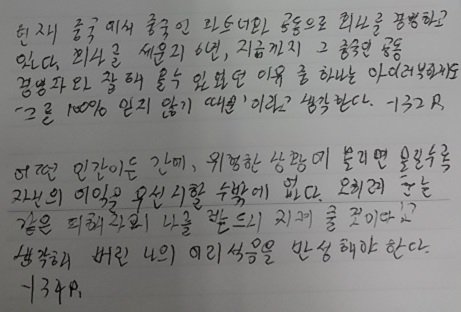 현재 중국에서 중국인 파트너와 공동으로 회사를 경영하고
있다. 회사를 세운지 6년, 지금까지 그 중국인 공동
경영자와 잘 해 올수 있었던 이유 중 하나는 아이러니하게도
'그를 100% 믿지 않기 때문'이라고 생각한다. -132P.
어떤 인간이든 간에, 위험한 상황에 몰리면 몰릴수록
자신의 이익을 우선시할 수밖에 없다. 오히려
같은 피해자와 나를 반드시 지켜 줄 것이라고
생각해 버린 나의 어리석음을 반성해야 한다.
-134P.